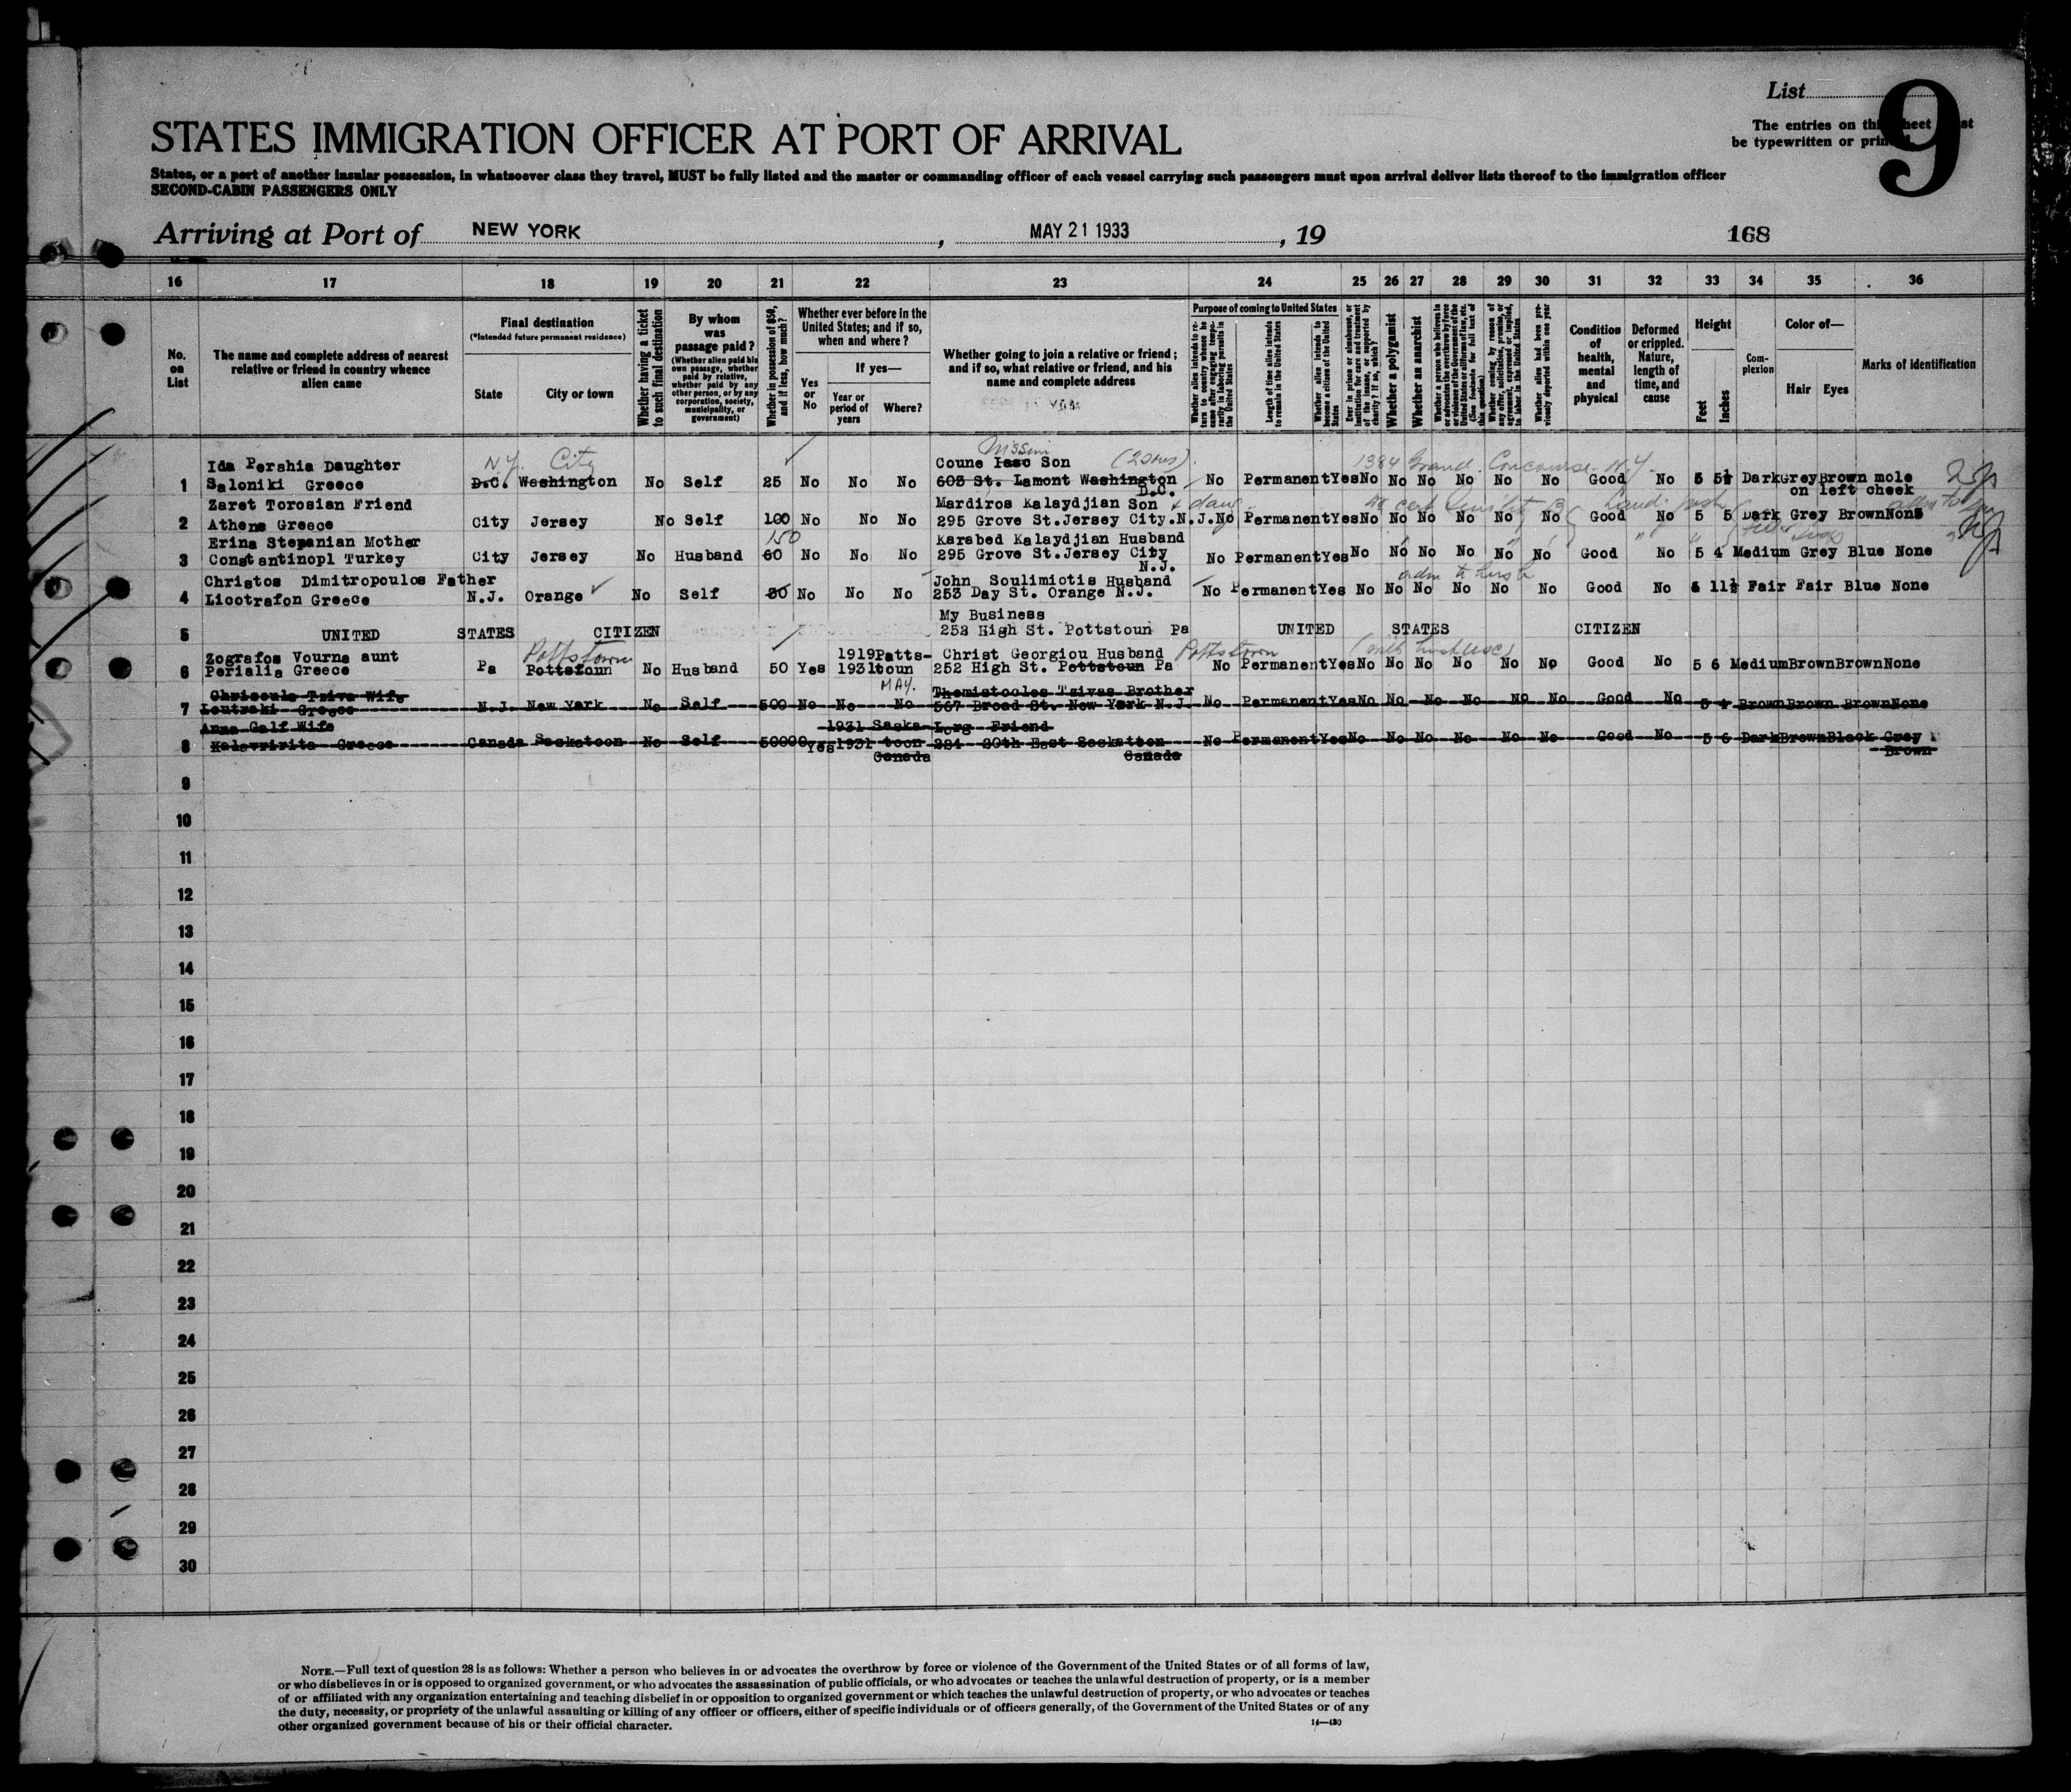 List
9
The entries on this sheet must
be typewritten or printed
STATES IMMIGRATION OFFICER AT PORT OF ARRIVAL
States, or a port of another insular possession, in whatsoever class they travel, MUST be fully listed and the master or commanding officer of each vessel carrying such passengers must upon arrival deliver lists thereof to the immigration officer
SECOND-CABIN PASSENGERS ONLY
Arriving at Port of NEW YORK, MAY 21 1933, 19
168
16 17 18 19 20 21 22 23 24 25 26 27 28 29 30 31 32 33 34 35 36
No. on List
The name and complete address of nearest relative or friend in country whence alien came
Final destination
(*Intended future permanent residence)
State
City or town
Whether having a ticket to such final destination
By whom was passage paid?
(Whether alien paid his own passage, whether paid by relative, whether paid by any other person, or by any corporation, society, municipality, or government)
Whether in possession of $50, and if less, how much?
Whether ever before in the United States; and if so, when and where?
If yes—
Yes or No
Year or period of years
Where?
Whether going to join a relative or friend; and if so, what relative or friend, and his name and complete address
Purpose of coming to United States
Whether alien intends to return to country whence he came after engaging temporarily in laboring pursuits in the United States
Length of time alien intends to remain in the United States
Whether alien intends to become a citizen of the United States
Ever in prison or almshouse, or institution for care and treatment of the insane, or supported by charity? If so, which?
Whether a polygamist
Whether an anarchist
Whether a person who believes in or advocates the overthrow by force or violence of the Government of the United States or all forms of law, etc. (See footnote for full text of this question)
Whether coming by reason of any offer, solicitation, promise, or agreement, expressed or implied, to labor in the United States
Whether alien had been previously deported within one year
Condition of health, mental and physical
Deformed or crippled. Nature, length of time, and cause
Height
Feet
Inches
Complexion
Color of—
Hair Eyes
Marks of identification
N.Y. City Missim (20yrs). 1384 Grand Concourse - N.Y.
Ida Pershia Daughter Coune Isac Son
1 Saloniki Greece D.C. Washington No Self 25 No No No 603 St. Lamont Washington No Permanent Yes No No No No No No Good No 5 5½ Dark Grey Brown mole
D.C. on left cheek
Zaret Torosian Friend Mardiros Kalaydjian Son
2 Athens Greece City Jersey No Self 100 No No No 295 Grove St.Jersey City.N.J. No Permanent Yes No No No No No No Good No 5 5 Dark Grey Brown None
150
Erina Stepanian Mother Karabed Kalaydjian Husband
3 Constantinopl Turkey City Jersey No Husband 60 No No No 295 Grove St.Jersey City No Permanent Yes No No No No No No Good No 5 4 Medium Grey Blue None
N.J.
Christos Dimitropoulos Father John Soulimiotis Husband
4 Licotrafon Greece N.J. Orange No Self 50 No No No 253 Day St. Orange N.J. No Permanent Yes No No No No No No Good No 5 11½ Fair Fair Blue None
My Business
5 UNITED STATES CITIZEN 252 High St. Pottstoun Pa UNITED STATES CITIZEN
Pottstown Pottstown
Zografos Vourna aunt 1919 Patts- Christ Georgiou Husband
6 Perialia Greece Pa Pottstonn No Husband 50 Yes 1931 toun 252 High St. Pottstoun Pa No Permanent Yes No No No No No No Good No 5 6 Medium Brown Brown None
MAY.
Chriscula Tziva Wife Themistocles Tzivas Brother
7 Loutraki Greece N.J. New York No Self 500 No No No 567 Broad St. New York N.J. No Permanent Yes No No No No No No Good No 5 4 Brown Brown Brown None
Anna Galf Wife 1931 Saska- Lorg Friend
8 Kalavririta Greece Canada Saskatoon No Self 50000 Yes 1931 toon 284 20th East Saskatoon No Permanent Yes No No No No No No Good No 5 6 Dark Brown Black Grey
Canada Canada Brown
9
10
11
12
13
14
15
16
17
18
19
20
21
22
23
24
25
26
27
28
29
30
NOTE.—Full text of question 28 is as follows: Whether a person who believes in or advocates the overthrow by force or violence of the Government of the United States or of all forms of law,
or who disbelieves in or is opposed to organized government, or who advocates the assassination of public officials, or who advocates or teaches the unlawful destruction of property, or is a member
of or affiliated with any organization entertaining and teaching disbelief in or opposition to organized government or which teaches the unlawful destruction of property, or who advocates or teaches
the duty, necessity, or propriety of the unlawful assaulting or killing of any officer or officers, either of specific individuals or of officers generally, of the Government of the United States or of any
other organized government because of his or their official character.
14—430